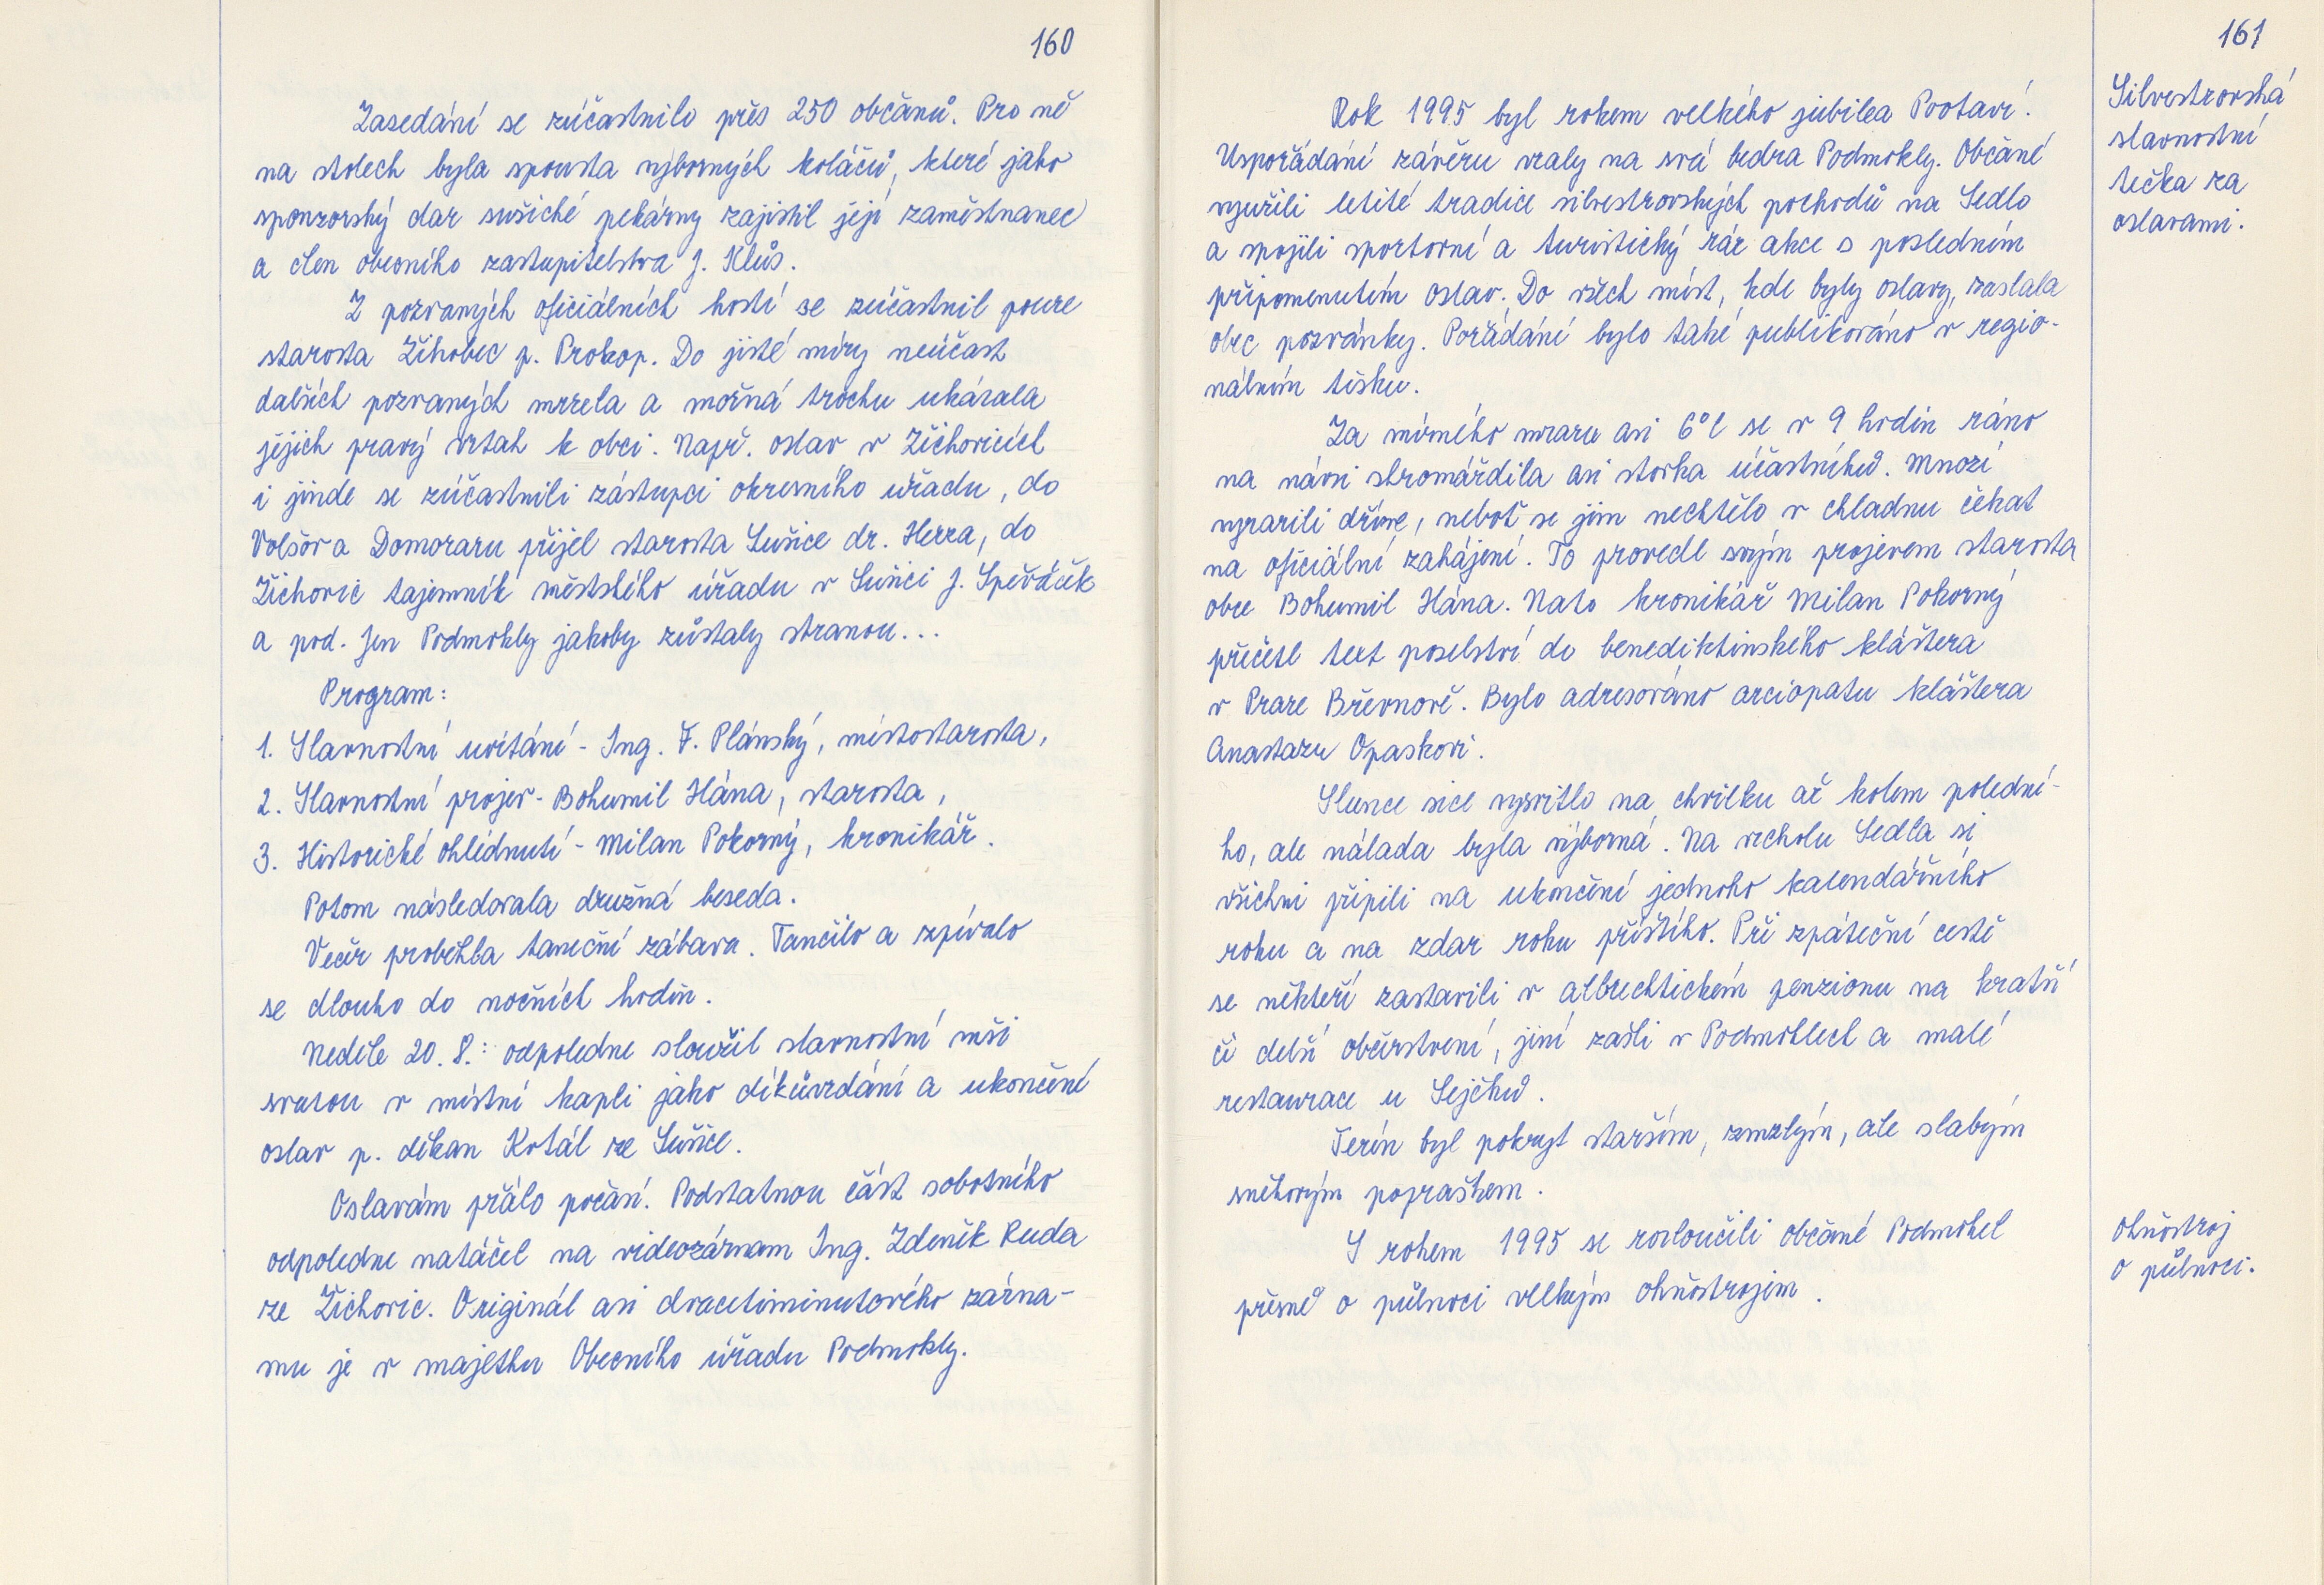 160
Zasedání se zúčastnilo přes 250 občanů. Pro ně
na stolech byla spousta výborných koláčů, které jako
sponzorský dar sušické pekárny zajistil její zaměstnanec
a člen obecního zastupitelstva J. Klůs.
Z pozvaných oficiálních hostí se zúčastnil pouze
starosta Žihobec p. Prokop. Do jisté míry neúčast
dalších pozvaných mrzela a možná trochu ukázala
jejich pravý vztah k obci. Např. oslav v Žichovicích
i jinde se zúčastnili zástupci okresního úřadu, do
Volšov a Domorazu přijel starosta Sušice dr. Herza, do
Žichovic tajemník městského úřadu v Sušici J. Speřáček
a pod. Jen Podmokly jakoby zůstaly stranou...
Program:
1. Slavnostní uvítání - Ing. F. Plánský, místostarosta,
2. Slavnostní projev - Bohumil Hána, starosta,
3. Historické ohlédnutí - Milan Pokorný, kronikář.
Potom následovala družná beseda.
Večer proběhla taneční zábava. Tančilo a zpívalo
se dlouho do nočních hodin.
Neděle 20. 8.: odpoledne sloužil slavnostní mši
svatou v místní kapli jako díkůvzdání a ukončení
oslav p. děkan Krtál ze Sušice.
Oslavám přálo počasí. Podstatnou část sobotního
odpoledne natáčel na videozáznam Ing. Zdeněk Ruda
ze Žichovic. Originál asi dvacetiminutového zázna-
mu je v majetku Obecního úřadu Podmokly.
161
Rok 1995 byl rokem velkého jubilea Pootaví.
Uspořádání závěru vzaly na svá bedra Podmokly. Občané
využili letité tradice silvestrovských pochodů na Sedlo
a spojili sportovní a turistický ráz akce s posledním
připomenutím oslav. Do všech míst, kde byly oslavy, zaslala
obec pozvánky. Pořádání bylo také publikováno v regio-
nálním tisku.
Za mírného mrazu asi 6°C se v 9 hodin ráno
na návsi shromáždila asi stovka účastníků. Mnozí
vyrazili dříve, neboť se jim nechtělo v chladnu čekat
na oficiální zahájení. To provedl svým projevem starosta
obce Bohumil Hána. Nato kronikář Milan Pokorný
přečetl text poselství do benediktinského kláštera
v Praze Břevnově. Bylo adresováno arciopatu kláštera
Anastazu Opaskovi.
Slunce sice vysvitlo na chvilku až kolem polední-
ho, ale nálada byla výborná. Na vrcholu Sedla si
všichni připili na ukončení jednoho kalendářního
roku a na zdar roku příštího. Při zpáteční cestě
se někteří zastavili v albrechtickém penzionu na kratší
či delší občerstvení, jiní zašli v Podmoklech a malé
restaurace u Sejčků.
Terén byl pokryt starším, zmrzlým, ale slabým
sněhovým popraškem.
S rokem 1995 se rozloučili občané Podmokel
přesně o půlnoci velkým ohňostrojem.
Silvestrovská
slavnostní
tečka za
oslavami.
Ohňostroj
o půlnoci.